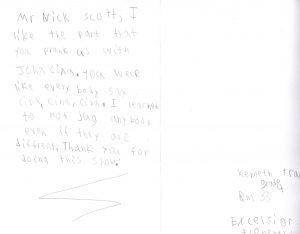 Mr Nick scott, I
like the part that
you prank us with
John Cina. you were
like every body sax
cina, cina, cina. I learned
to not jug anybody
even if they are
different. Thank you for
doing this show.
Kemeth
grade
Rm 33
Excelsior